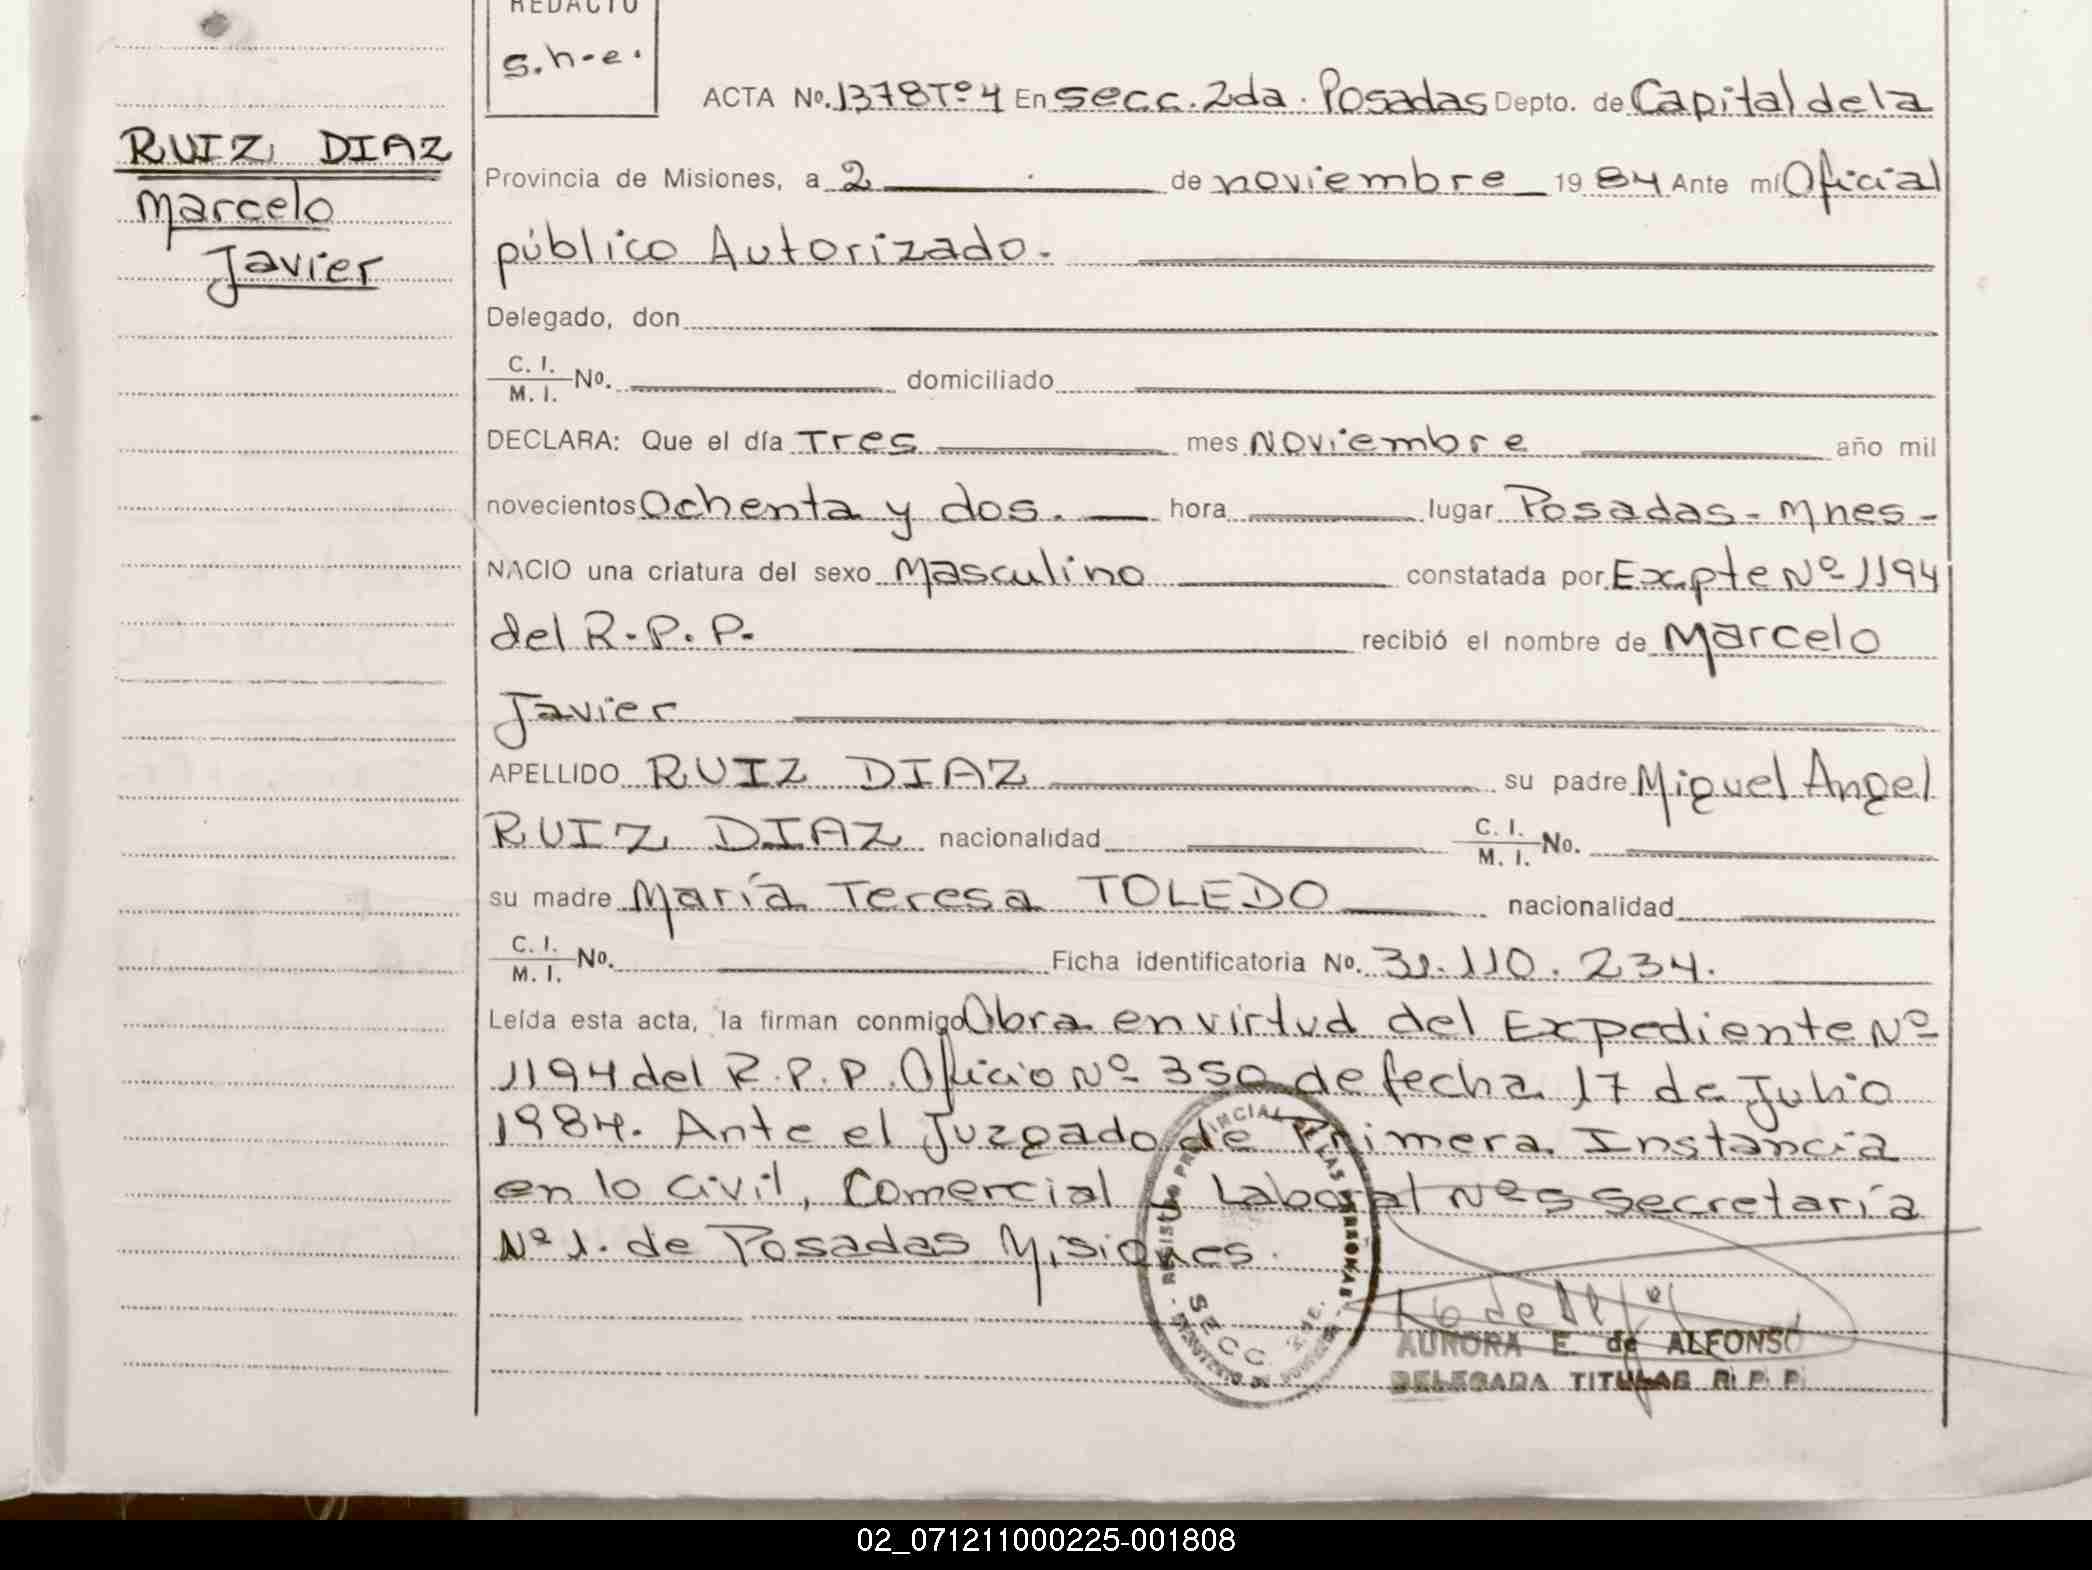 REDACTO
s.h-e.
RUIZ DIAZ
Marcelo
Javier
ACTA No. 1378Tº4 En secc. 2da. Posadas Depto. de Capital de la
Provincia de Misiones, a 2 de noviembre 1984 Ante mí Oficial
público Autorizado.
Delegado, don
C. I.
M. I. No. domiciliado
DECLARA: Que el día Tres mes Noviembre año mil
novecientos Ochenta y dos. hora lugar Posadas - Mnes -
NACIO una criatura del sexo Masculino constatada por Expte Nº 1194
del R.P.P. recibió el nombre de Marcelo
Javier
APELLIDO RUIZ DIAZ su padre Miguel Angel
RUIZ DIAZ nacionalidad C. I. M. I. No.
su madre María Teresa TOLEDO nacionalidad
C. I.
M. I. No. Ficha identificatoria No. 31.110.234.
Leída esta acta, la firman conmigo Obra en virtud del Expediente Nº
1194 del R.P.P. Oficio Nº 350 de fecha 17 de Julio
1984. Ante el Juzgado de Primera Instancia
en lo civil, Comercial Laboral Nº5 secretaría
Nº 1. de Posadas Misiones.
REGISTRO PROVINCIAL DE LAS PERSONAS
SECC. 2da.
AURORA E. de ALFONSO
DELEGADA TITULAR R. P. P.
02_071211000225-001808